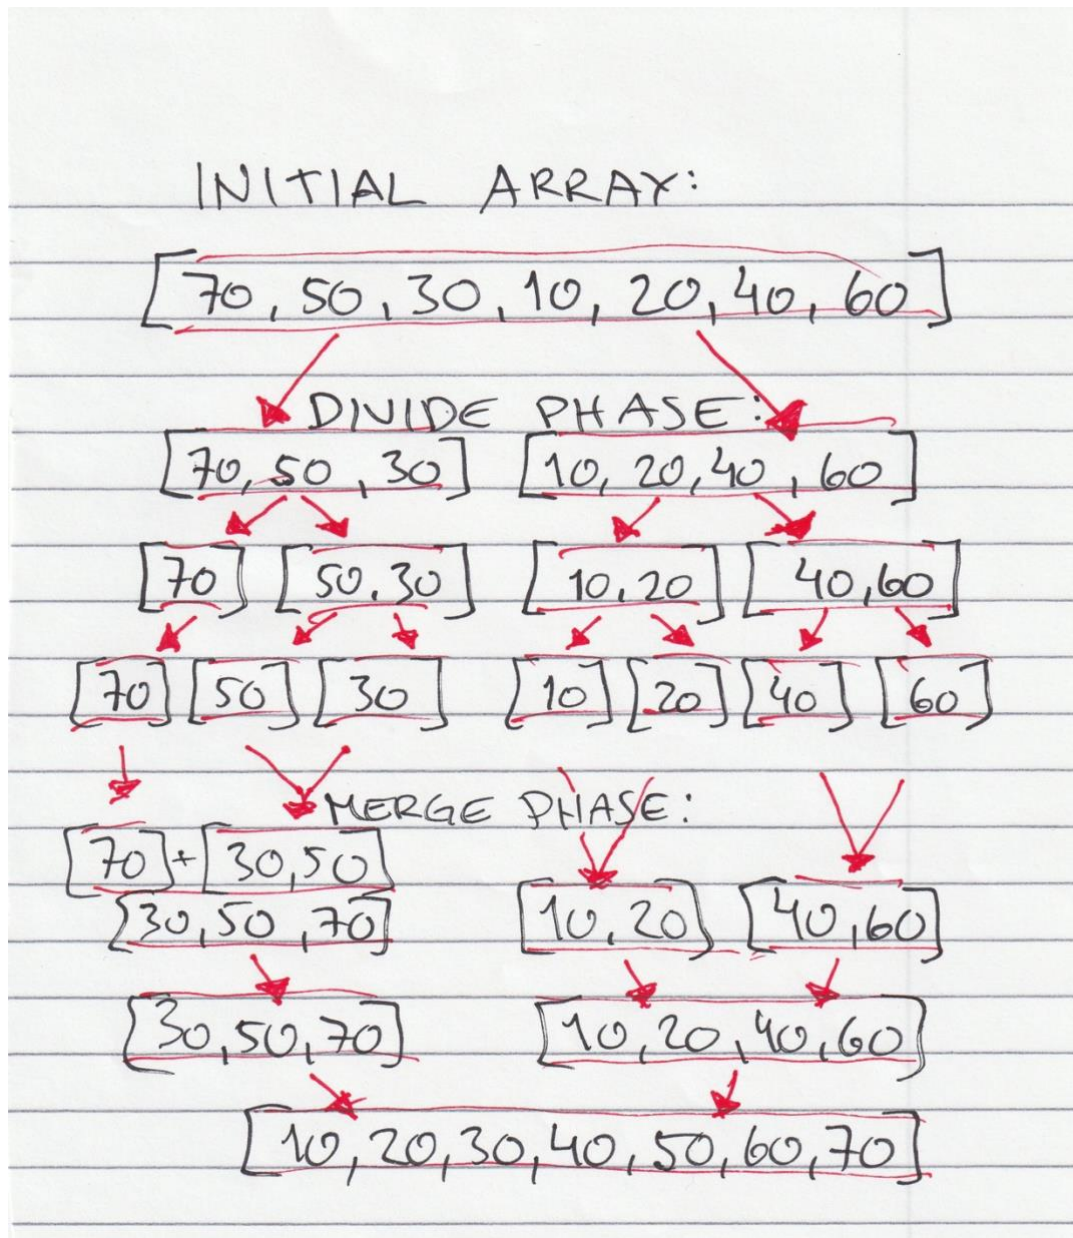 INITIAL ARRAY:
[70, 50, 30, 10, 20, 40, 60]
DIVIDE PHASE:
[70, 50, 30] [10, 20, 40, 60]
[70] [50, 30] [10, 20] [40, 60]
[70] [50] [30] [10] [20] [40] [60]
MERGE PHASE:
[70] + [30, 50]
[30, 50, 70] [10, 20] [40, 60]
[30, 50, 70] [10, 20, 40, 60]
[10, 20, 30, 40, 50, 60, 70]